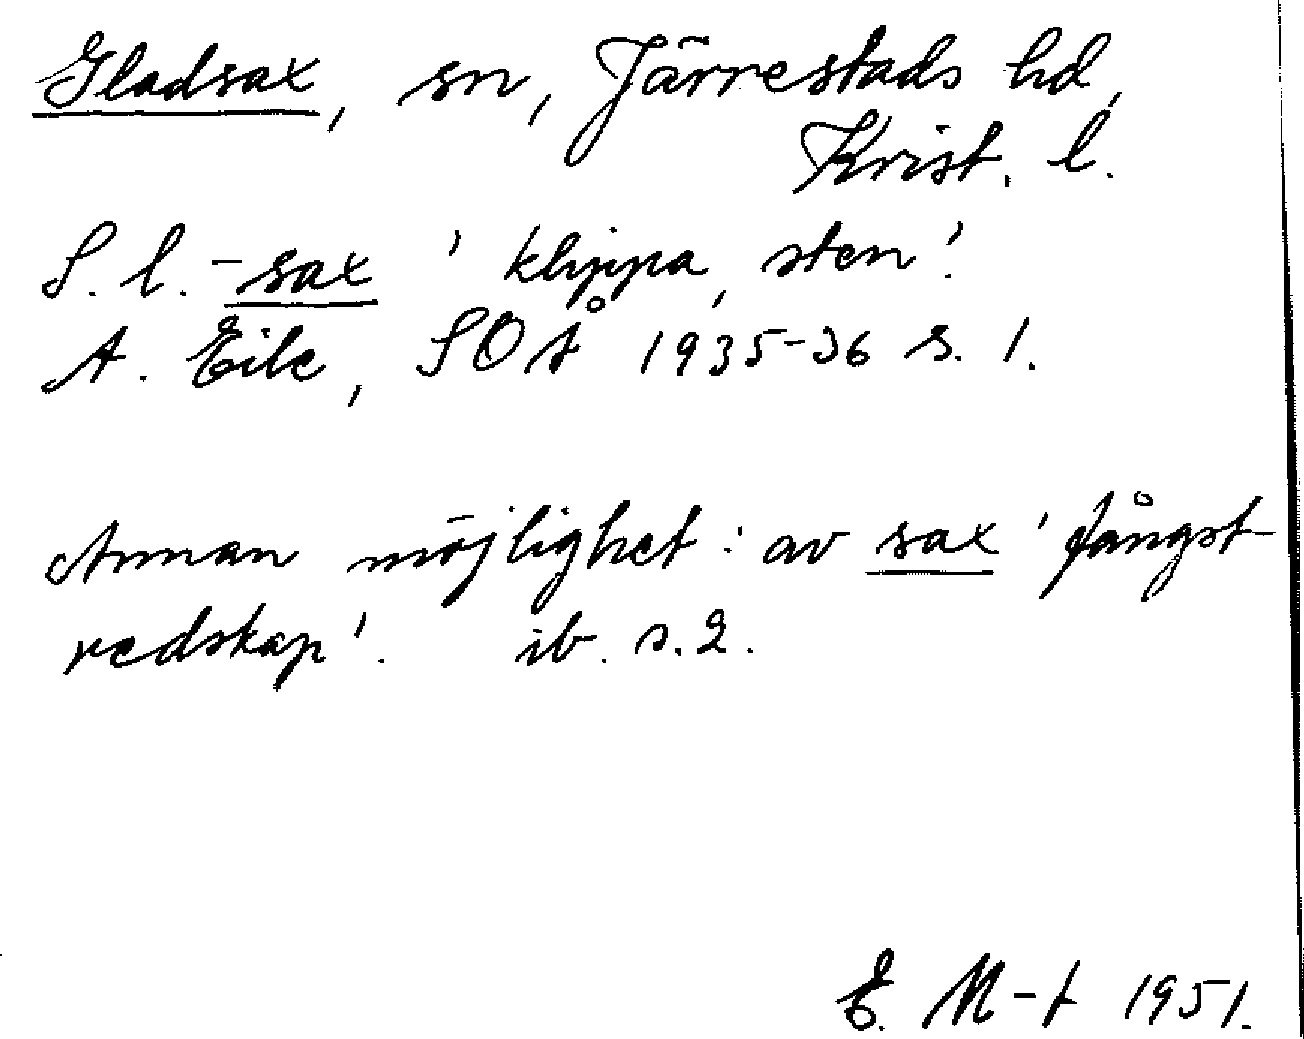 Gladsax, sn, Järrestads hd,
Krist. l.
S. l. -sax 'klippa, sten'.
A. Eile, SOÅ 1935-36 s. 1.
Annan möjlighet: av sax 'fångst-
redskap'. ib. s. 2.
E. M-t 1951.